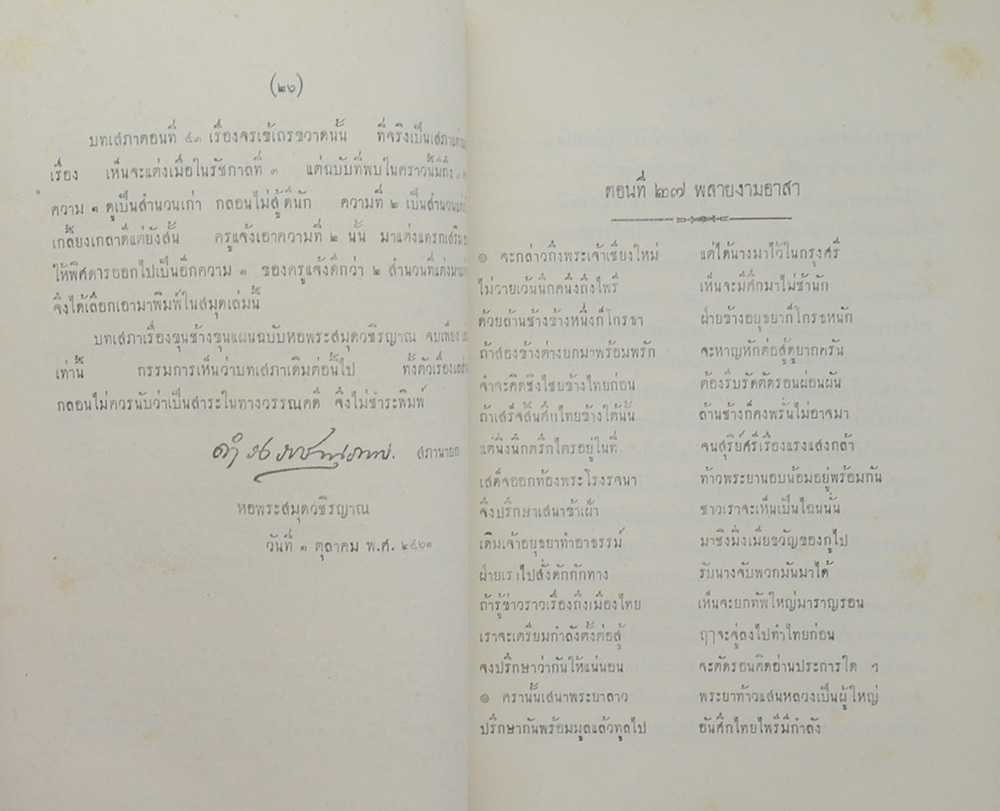 (๒๖)
บทเสภาตอนที่ ๔๓ เรื่องจรเข้เถรขวาดนั้น ที่จริงเป็นเสภา
เรื่อง เห็นจะแต่งเมื่อในรัชกาลที่ ๓ แต่ฉบับที่พบในคราวนี้มีถึง
ความ ๑ ดูเป็นสำนวนเก่า กลอนไม่สู้ดีนัก ความที่ ๒ เป็นสำนวน
เกลี้ยงเกลาดีแต่ยังสั้น ครูแจ้งเอาความที่ ๒ นั้น มาแต่งแทรกเสริม
ให้พิศดารออกไปเป็นอีกความ ๑ ของครูแจ้งดีกว่า ๒ สำนวนที่แต่งมา
จึงได้เลือกเอามาพิมพ์ในสมุดเล่มนี้
บทเสภาเรื่องขุนช้างขุนแผนฉบับหอพระสมุดวชิรญาณ จบเพียง
เท่านี้ กรรมการเห็นว่าบทเสภาเดิมต่อนี้ไป ทั้งตัวเรื่อง
กลอนไม่ควรนับว่าเป็นสาระในทางวรรณคดี จึงไม่ชำระพิมพ์
ดำรงราชานุภาพ. สภานายก
หอพระสมุดวชิรญาณ
วันที่ ๑ ตุลาคม พ.ศ. ๒๔๖๑
ตอนที่ ๒๗ พลายงามอาสา
๏ จะกล่าวถึงพระเจ้าเชียงใหม่ แต่ได้นางมาไว้ในกรุงศรี
ไม่วายเว้นนึกคนึงถึงไพรี เห็นจะมีศึกมาไม่ช้านัก
ด้วยล้านช้างข้างหนึ่งก็โกรธา ฝ่ายข้างอยุธยาก็โกรธหนัก
ถ้าสองข้างต่างยกมาพร้อมพรัก จะหาญหักต่อสู้ดูยากครัน
จำจะคิดชิงไชยข้างไทยก่อน ต้องรีบรัดตัดรอนผ่อนผัน
ถ้าเสร็จสิ้นศึกไทยข้างใต้นั้น ล้านช้างก็คงพรั่นไม่อาจมา
แต่นิ่งนึกตรึกไตรอยู่ในที่ จนสุริย์ศรีเรืองแรงแสงกล้า
เสด็จออกท้องพระโรงรจนา ท้าวพระยานอบน้อมอยู่พร้อมกัน
จึงปรึกษาเสนาข้าเฝ้า ชาวเราจะเห็นเป็นไฉนนั่น
เดิมเจ้าอยุธยาทำอาธรรม์ มาชิงมิ่งเมียขวัญของกูไป
ฝ่ายเราไปสั่งดักกักทาง รับนางจับพวกมันมาได้
ถ้ารู้ข่าวราวเรื่องถึงเมืองไทย เห็นจะยกทัพใหญ่มาราญรอน
เราจะเตรียมกำลังตั้งต่อสู้ ฤๅจะจู่ลงไปทำไทยก่อน
จงปรึกษาว่ากันให้แน่นอน จะตัดรอนคิดอ่านประการใด ฯ
๏ ครานั้นเสนาพระยาลาว พระยาท้าวแสนหลวงเป็นผู้ใหญ่
ปรึกษากันพร้อมมูลแล้วทูลไป อันศึกไทยไพรีมีกำลัง